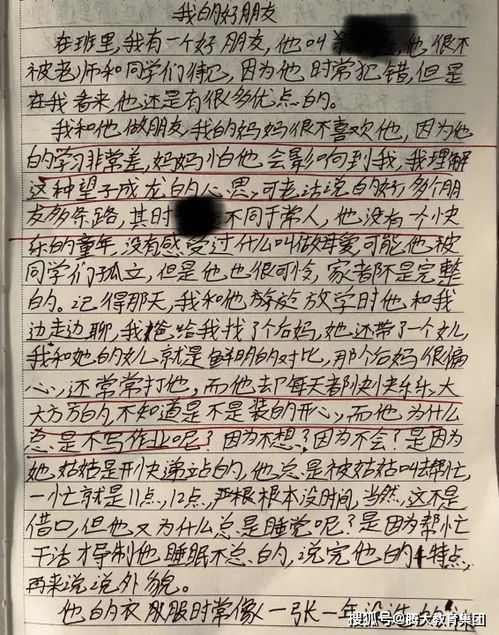 我的好朋友
在班里,我有一个好朋友,他叫 他很不
被老师和同学们待见,因为他时常犯错,但是
在我看来他还是有很多优点的。
我和他做朋友,我的妈妈很不喜欢他,因为他
的学习非常差,妈妈怕他会影响到我,我理解
这种望子成龙的心思,可老话说的好,多个朋
友多条路,其时 不同于常人,他没有一个快
乐的童年,没有感受过什么叫做母爱可能他被
同学们孤立,但是他也很可怜,家都不是完整
的。记得那天,我和他放学时他和我
边走边聊,我爸给我找了个后妈,她还带了一个女儿
我和她的女儿就是鲜明的对比,那个后妈很偏
心,还常常打他,而他却每天都快快乐乐,大
大方方的,不知道是不是装的开心,而他为什么
总是不写作业呢?因为不想?因为不会?是因为
她姑姑是开快递站的,他总是被姑姑叫去帮忙,
一忙就是11点,12点,根本没时间,当然,这不是
借口,但他又为什么总是睡觉呢?是因为帮忙
干活才导制他睡眠不足的,说完他的特点,
再来说说外貌。
他的衣服时常像一张一年没洗
搜狐号@腾大教育集团